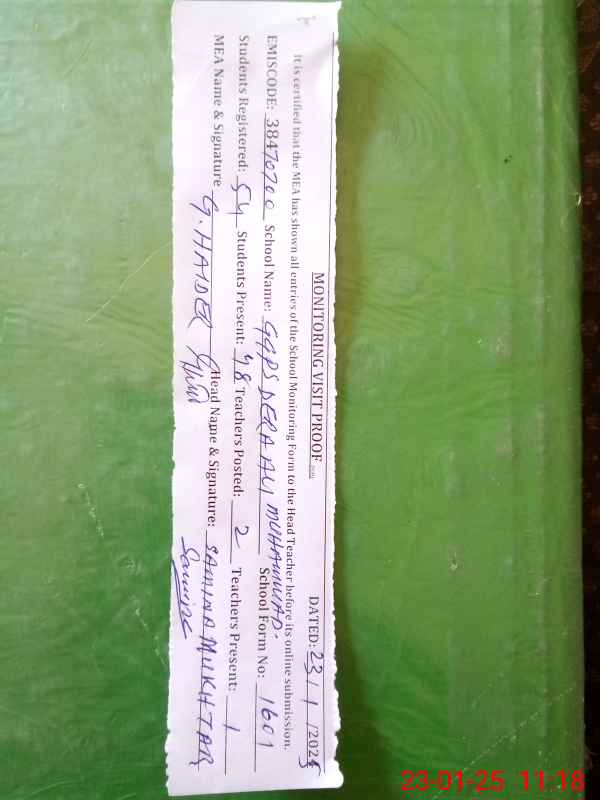 MONITORING VISIT PROOF
DATED: 23/1/2025
It is certified that the MEA has shown all entries of the School Monitoring Form to the Head Teacher before its online submission.
EMISCODE: 38470700 School Name: GGPS DERA ALI MUHAMMAD. School Form No: 1601
Students Registered: 54 Students Present: 48 Teachers Posted: 2 Teachers Present: 1
MEA Name & Signature G. HAIDER Head Name & Signature: SAMINA MUKHTAR
23-01-25 11:18